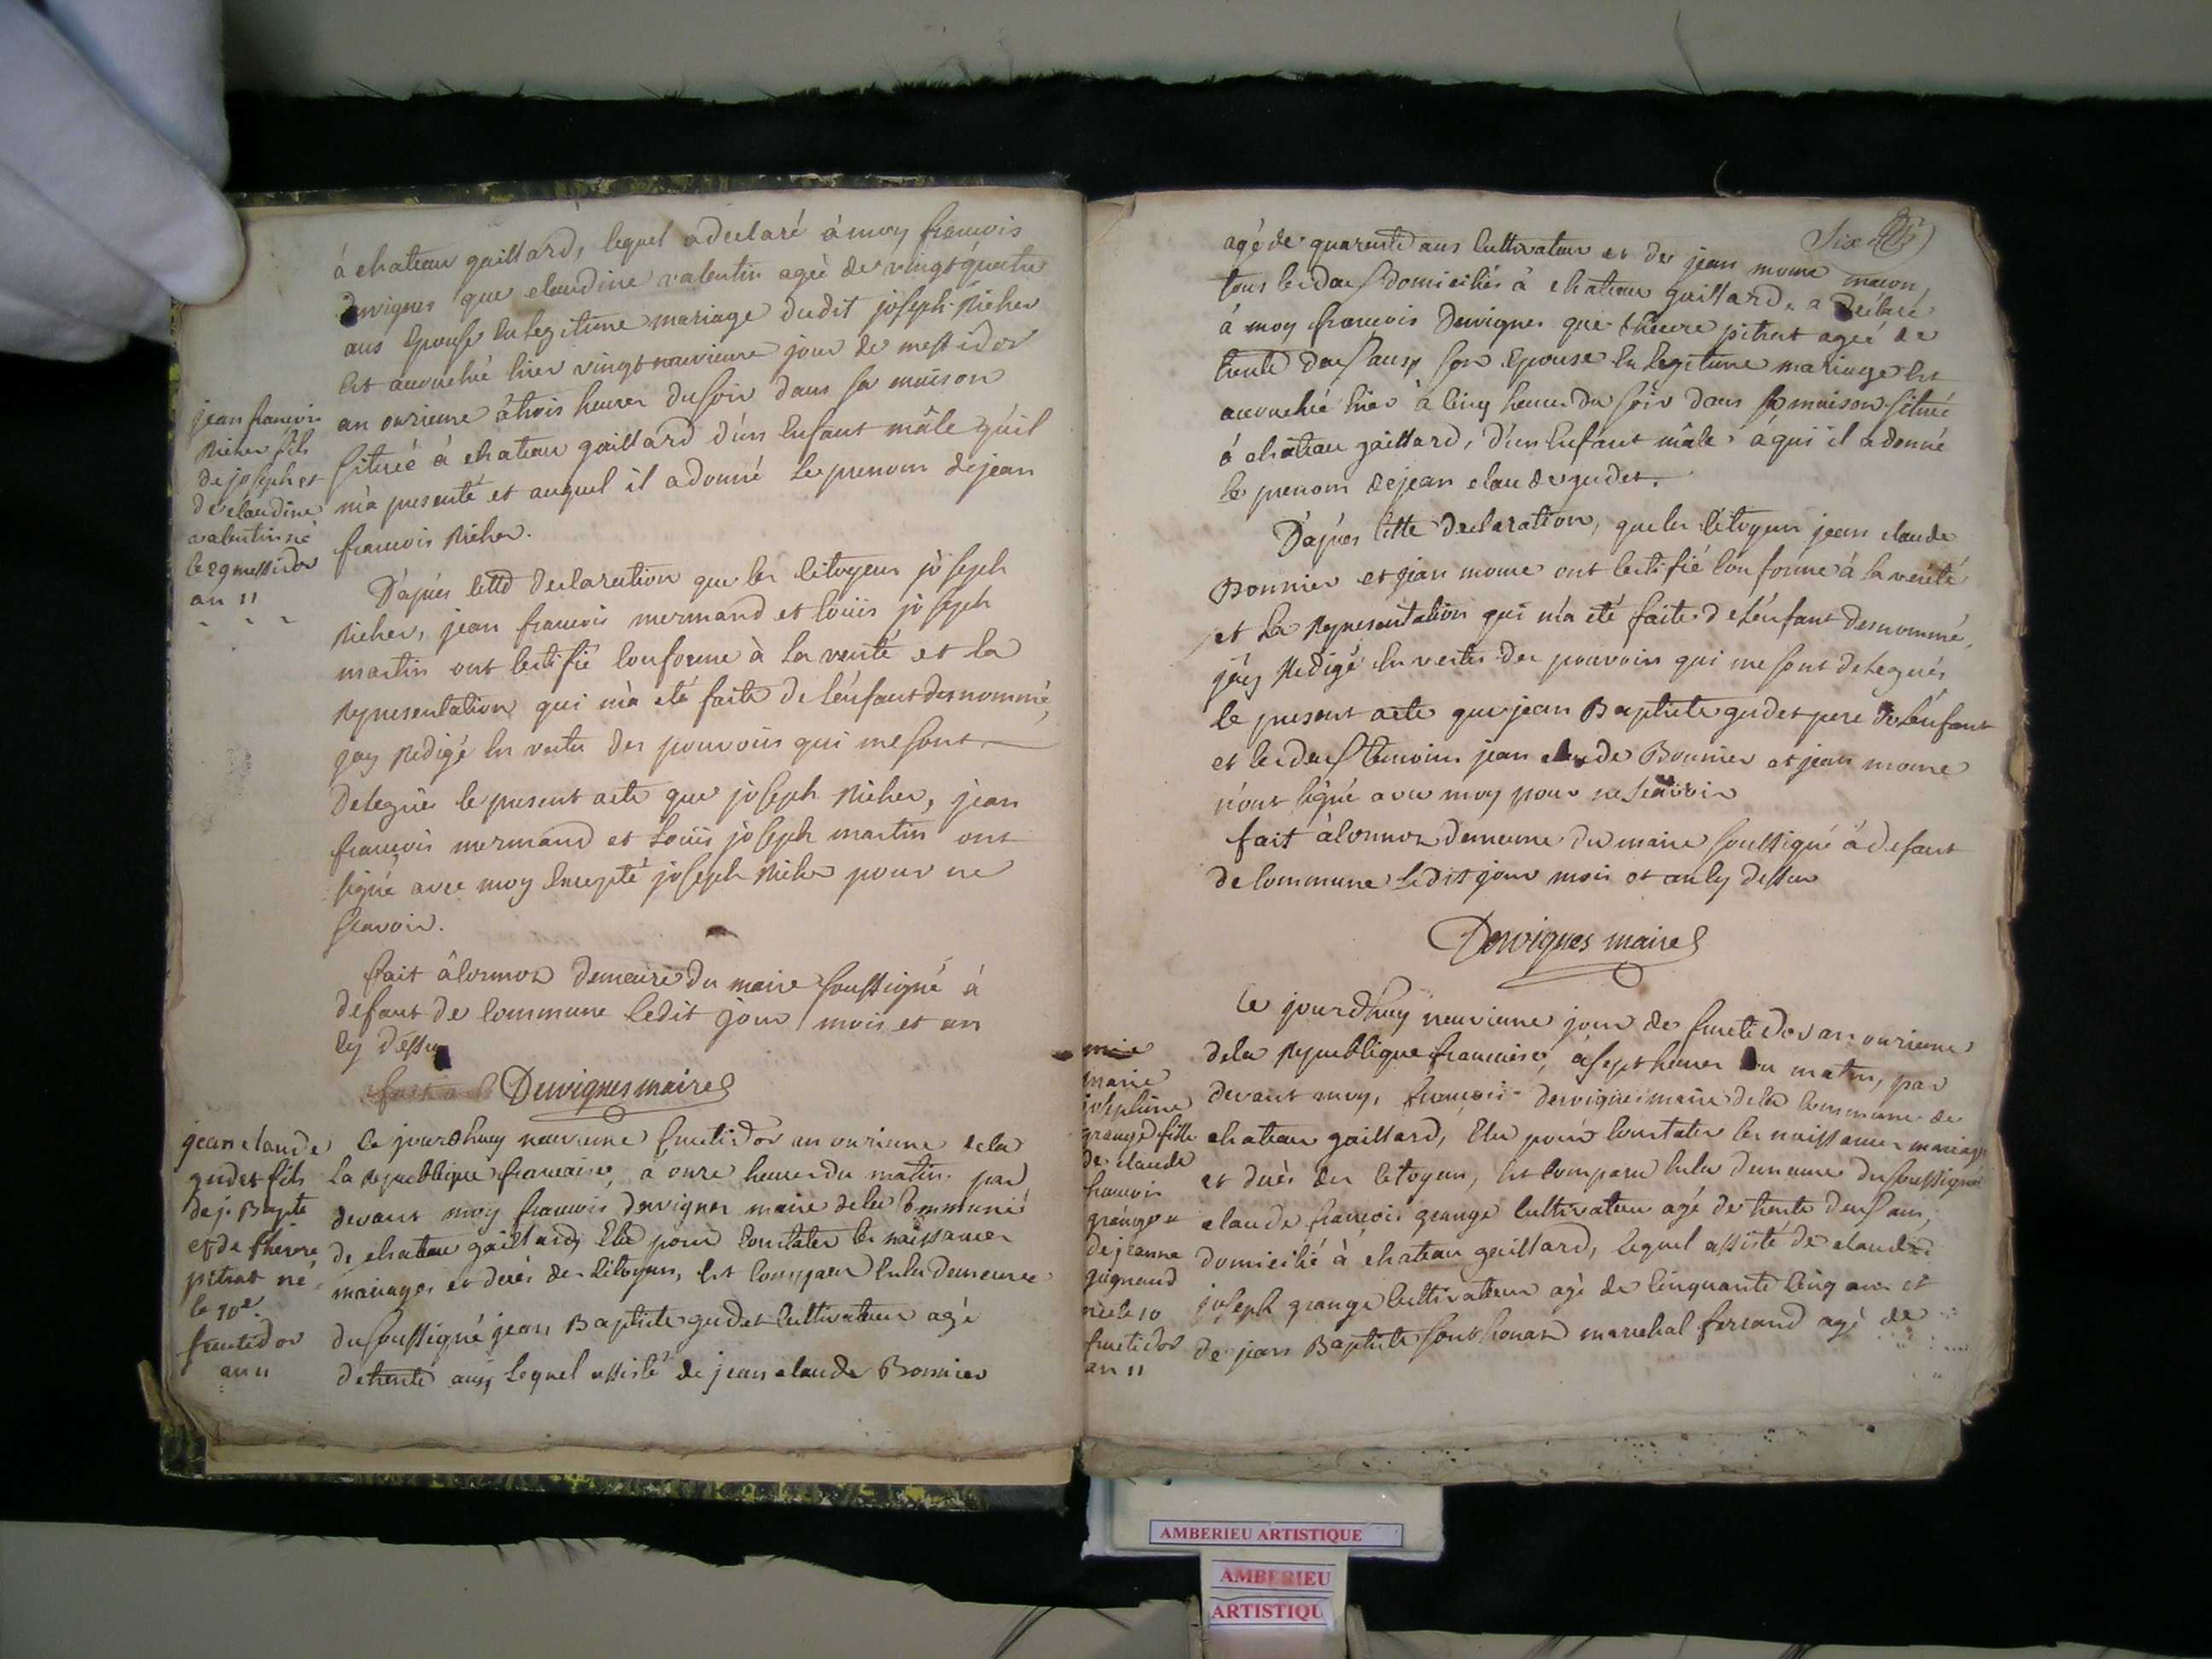 á chateau gaillard, lequel a declaré á moy francois
Dervignes que claudine valentin ageé de vingt quatre
ans Epouse En legitime mariage dudit joseph Richer
Est accouchée hier vingt neuvieme jour de messidor
an onzieme á trois heures du soir dans sa maison
situeé á chateau gaillard d'un Enfant mâle qu'il
m'a presenté et auquel il a donné le prenom de jean
francois Richer.
jean francois
Richer fils
de joseph et
de claudine
valentin né
le 29 messidor
an 11
D'apres cette declaration que les citoyens joseph
Richer, jean francois mermand et loüis joseph
martin ont certifié conforme à la verité et la
Representation qui m'a eté faite de l'enfant desnommé,
jay Redigé En vertu des pouvoirs qui me sont
Delegués le present acte que joseph Richer, jean
francois mermand et Loüis joseph martin ont
signé avec moy Excepté joseph Richer pour ne
scavoir.
fait á Cormoz demeure du maire soussigné á
defaut de commune ledit jour mois et an
cy dessus
Dervignes maire
jean claude
gudet fils
de j. Bapte
et de therese
pitrat né
le 10e
fructidor
an 11
Ce jourdhuy neuvieme fructidor an onzieme dela
La Republique francaise, á onze heures du matin, par
devant moy francois Dervignes maire dela Commune
de chateau gaillard, Elu pour constater les naissances
mariages et decés des citoyens, Est comparu En la demeure
du soussigné jean Baptiste gudet cultivateur agé
de trente ans, lequel assisté de jean claude Bonnier
Six
agé de quarente ans cultivateur et de jean mome macon,
tous les deux domiciliés á chateau gaillard, a declaré
á moy francois Dervignes que therese pitrat ageé de
trente deux ans, son Epouse En legitime mariage Est
accouchée hier á cinq heures du soir dans sa maison situeé
á chateau gaillard, d'un Enfant mâle, á qui il a donné
le prenom de jean claude gudet.
D'apres cette declaration, que les citoyens jean claude
Bonnier et jean mome ont certifié conforme á la verité
et la Representation qui m'a eté faite de l'enfant desnommé,
j'ay Redigé En vertu des pouvoirs qui me sont delegués
le present acte que jean Baptiste gudet pere de l'enfant
et les deux temoins jean claude Bonnier et jean mome
n'ont signé avec moy pour ne scavoir
fait á Cormoz demeure du maire soussigné á defaut
de commune ledit jour mois et an cy dessus
Dervignes maire
marie
josephine
grange fille
de claude
francois
grange et
de jeanne
guignand
neé le 10
fructidor
an 11
Ce jourdhuy neuvieme jour de fructidor an onzieme
dela Republique francaise, á sept heures du matin, par
devant moy, francois Dervignes maire dela Commune de
chateau gaillard, Elu pour constater les naissances mariages
et decés des citoyens, Est comparu En la demeure du soussigné
claude francois grange cultivateur agé de trente deux ans,
domicilié á chateau gaillard, lequel assisté de claude
joseph grange cultivateur agé de cinquante cinq ans et
de jean Baptiste marechal ferrand agé de
AMBERIEU ARTISTIQUE
AMBERIEU
ARTISTIQU